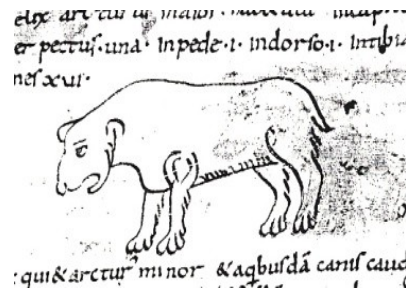 arctus maior
et pectus·una· Inpede·i· indorso·i· Intibia
nes xvi·
qui & arctur minor & aqbusdā canis caud